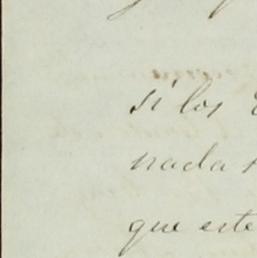 si los
nada
que este